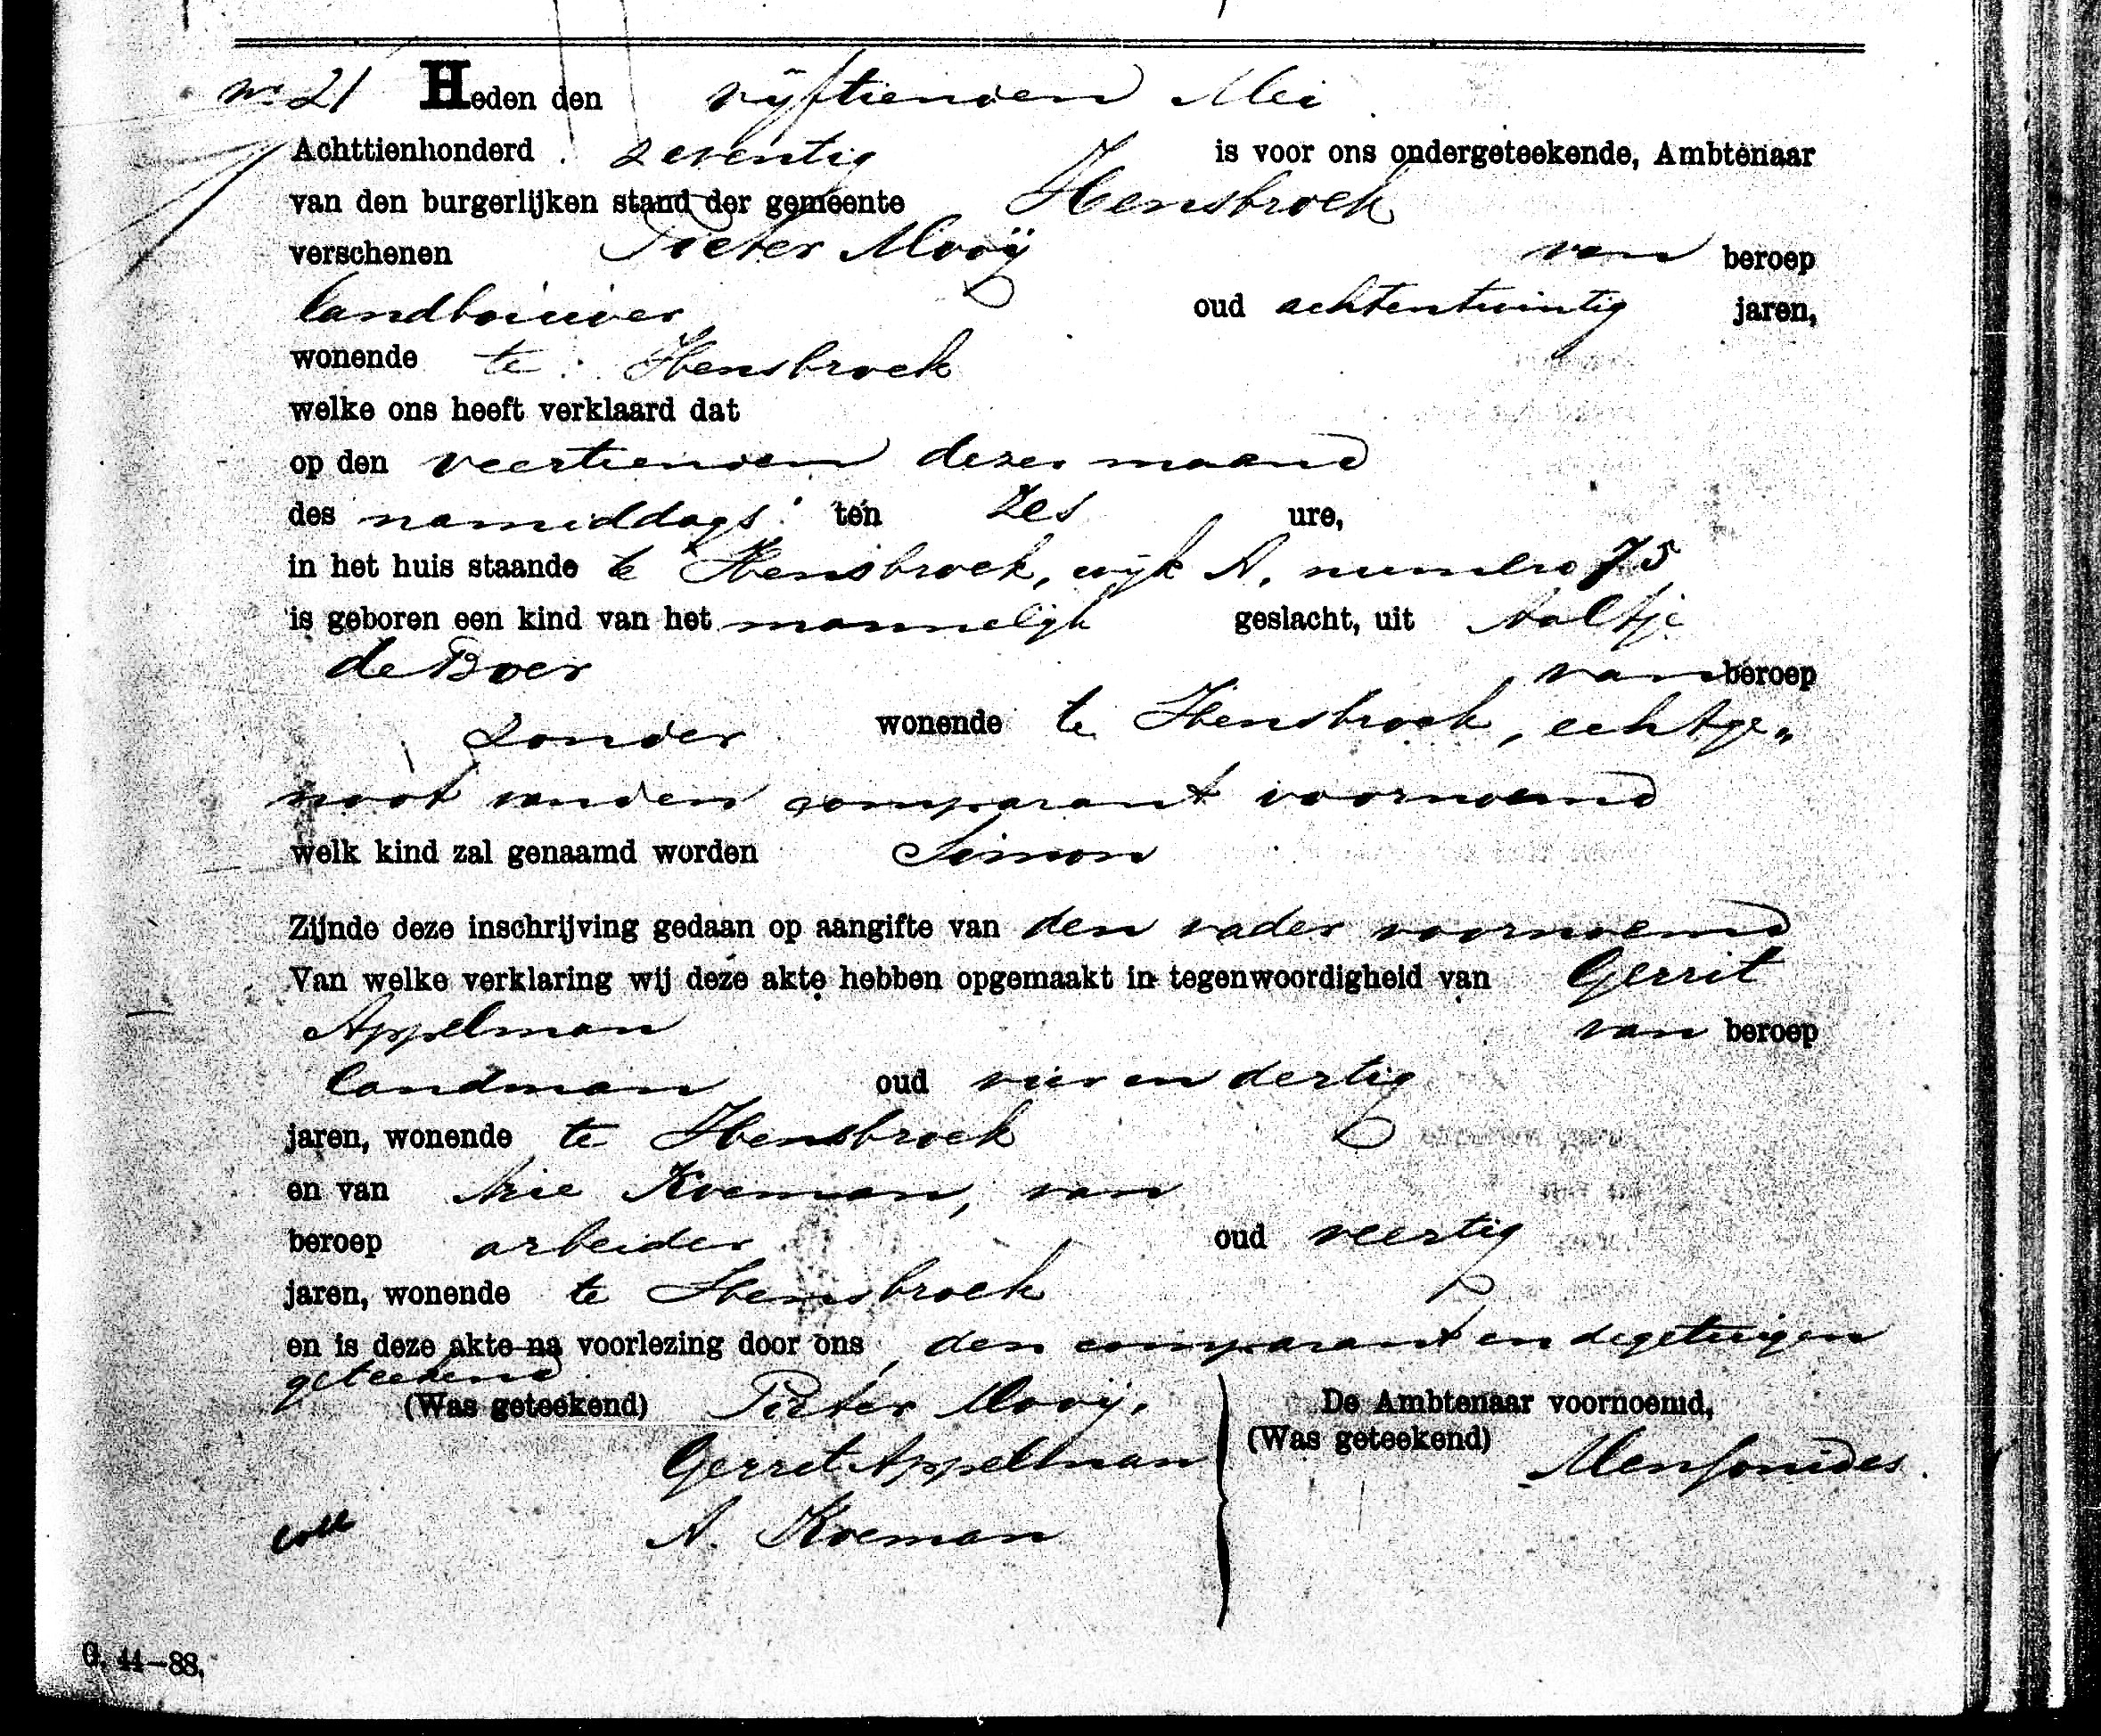 No. 21 Heden den vijftienden Mei
Achttienhonderd zeventig is voor ons ondergeteekende, Ambtenaar
van den burgerlijken stand der gemeente Hensbroek
verschenen Pieter Mooij van beroep
landbouwer oud achtentwintig jaren,
wonende te Hensbroek
welke ons heeft verklaard dat
op den veertienden dezer maand
des namiddags ten zes ure,
in het huis staande te Hensbroek, wijk A, numero 75
is geboren een kind van het mannelijk geslacht, uit Aaltje
de Boer van beroep
zonder wonende te Hensbroek, echtge„
noot van den comparant voornoemd
welk kind zal genaamd worden Simon
Zijnde deze inschrijving gedaan op aangifte van den vader voornoemd
Van welke verklaring wij deze akte hebben opgemaakt in tegenwoordigheid van Gerrit
Appelman van beroep
landman oud vier en dertig
jaren, wonende te Hensbroek
en van Arie Koeman, van
beroep arbeider oud veertig
jaren, wonende te Hensbroek
en is deze akte na voorlezing door ons, den comparant en de getuigen
geteekend.
(Was geteekend) Pieter Mooij. De Ambtenaar voornoemd,
Gerret Appelman (Was geteekend) Mensonides.
coll A. Koeman
G. 44—88.